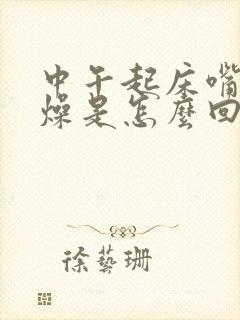 中午起床嘴
燥是怎麼回
徐藝珊